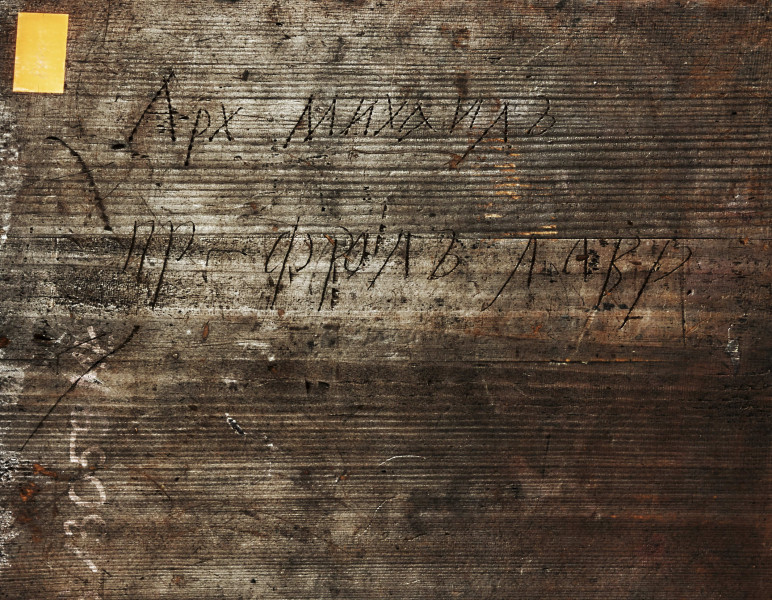 Арх михаилъ
пр. фролъ лавр